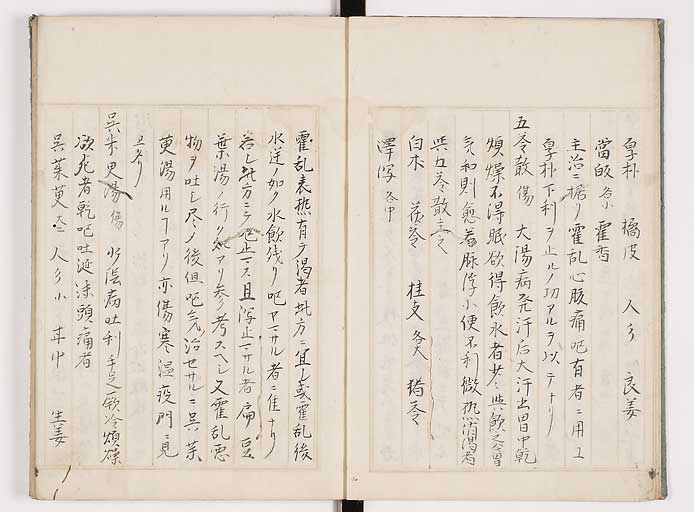 厚朴　橘皮　人参　良姜
當皈各小　藿香
主治ニ據リ霍乱心腹痛吐有者ニ用ユ
厚朴下利ヲ止ルノ功アルヲ以テナリ
五苓散傷　大陽病発汗后大汗出胃中乾
煩燥不得眠欲得飲水者少々與飲之令胃
気和則愈若脉浮小便不利微熱消渇者
與五苓散主之
白朮　茯苓　桂支各大　猪苓
澤瀉各中
霍乱表熱有テ渇者此方ニ宜シ或霍乱後
水逆ノ如ク水飲残リ吐ヤマサル者ニ佳ナリ
若シ此方ニテ吐止マス且瀉止マサル者扁豆
葉湯ノ行ク処アリ参考スヘシ又霍乱悪
物ヲ吐シ尽ノ後但吐気治セサルニ呉茱
萸湯用ルヿアリ亦傷寒温疫門ニ見
ヱタリ
呉朱臾湯傷　少陰病吐利手足厥冷煩燥
欲死者乾吐吐涎沫頭痛者
呉茱萸大　人参小　中　生姜